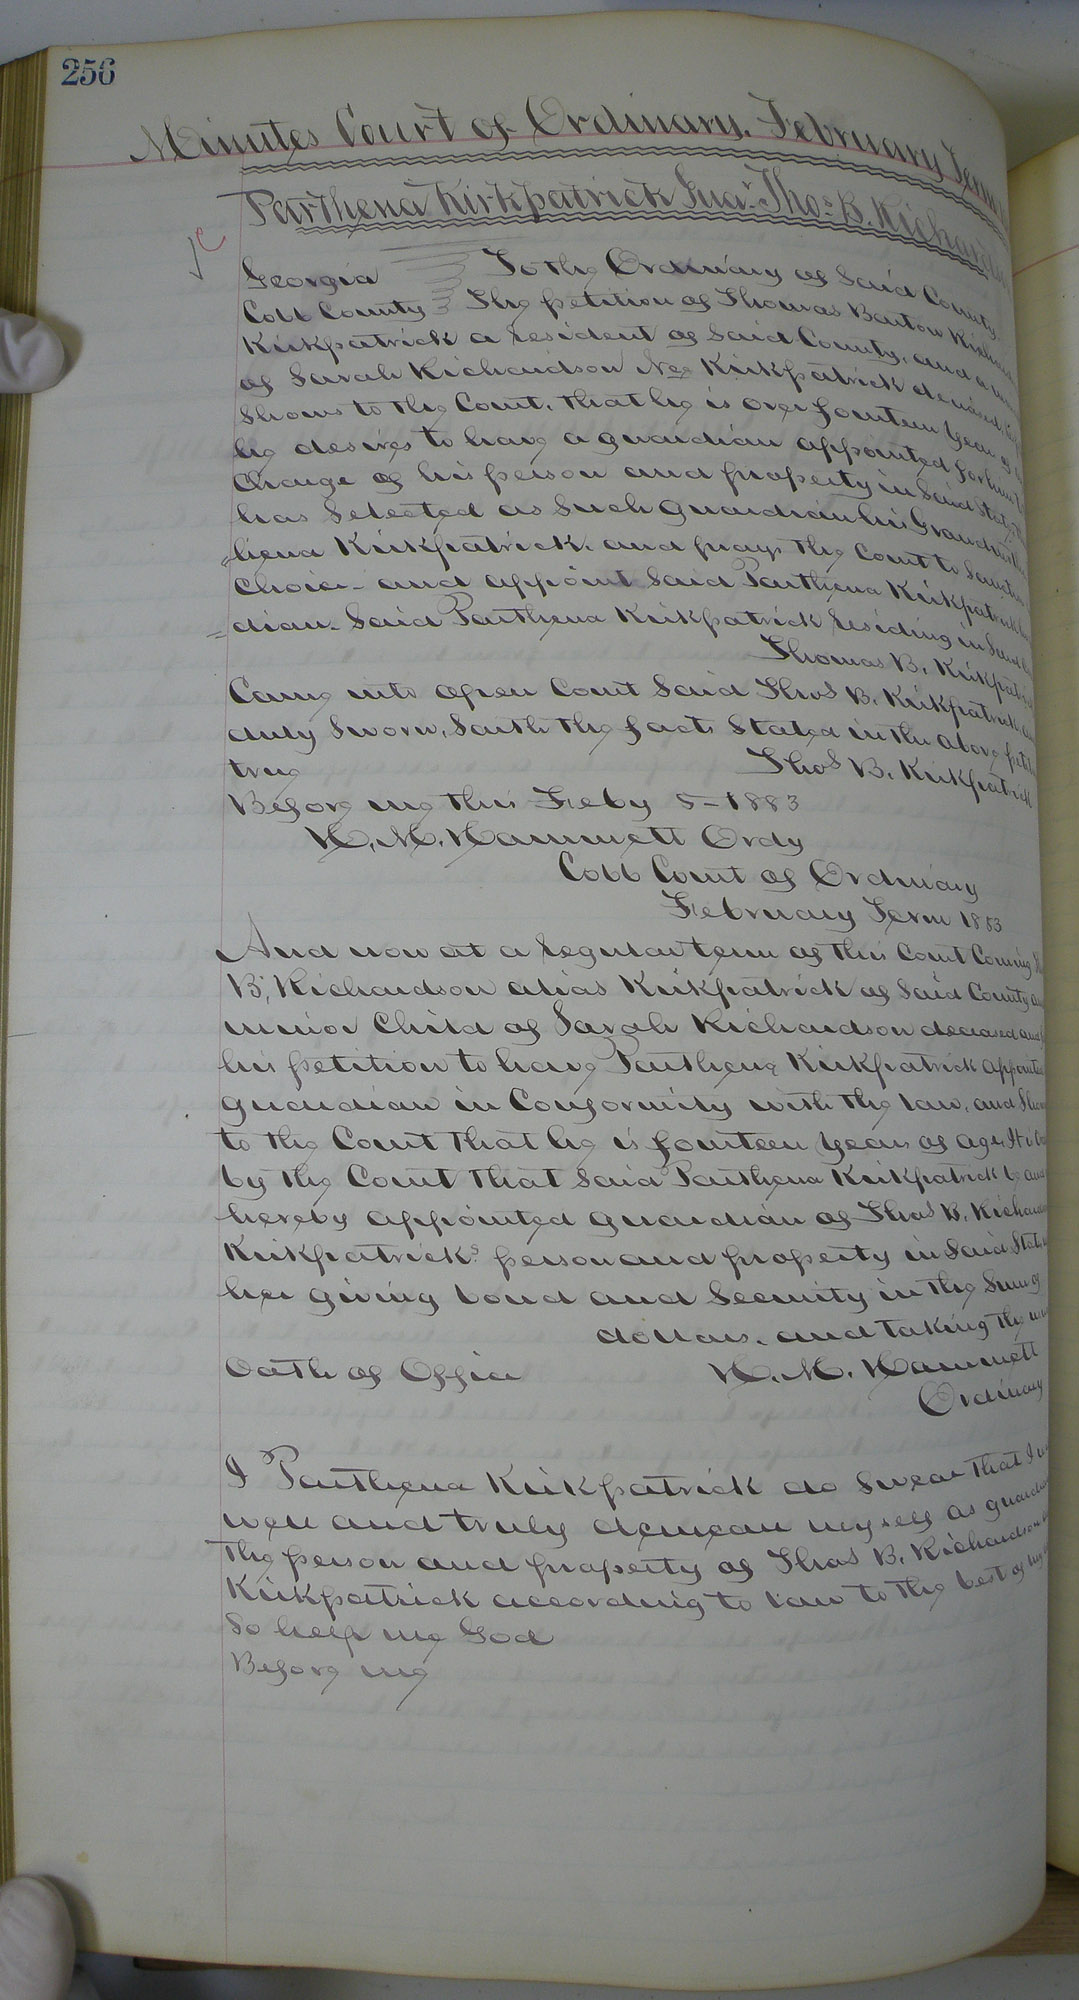 256
Minutes Court of Ordinary. February Term
Parthena Kirkpatrick Gua^r. Tho^s. B. Richard
Georgia To the Ordinary of Said County
Cobb County The petition of Thomas Barton
Kirkpatrick a resident of Said County, and a
of Sarah Richardson Nee Kirkpatrick deceased
Shows to the Court, that he is over fourteen years of
he desires to have a guardian appointed for him
Charge of his person and property in Said State
has Selected as Such guardian his
=hena Kirkpatrick. and prays the Court to Sanction
Choice – and appoint Said Parthena Kirkpatrick
=dian. Said Parthena Kirkpatrick residing in Said
Thomas B. Kirkpatrick
Came into open Court Said Thos B. Kirkpatrick
duly Sworn, Saith the facts Stated in the above
true Thos B. Kirkpatrick
Before me this Feby 5–1883
H. M. Hammett Ordy
Cobb Court of Ordinary
February Term 1883
And now at a regular term of this Court Coming
B. Richardson alias Kirkpatrick of Said County
minor Child of Sarah Richardson deceased and
his petition to have Parthena Kirkpatrick appointed
guardian in Conformity with the law, and
to the Court that he is fourteen years of age. It is
by the Court that Said Parthena Kirkpatrick be and
hereby appointed guardian of Thos B.
Kirkpatricks person and property in Said State
her giving bond and Security in the Sum of
dollars. and taking the
Oath of Office H. M. Hammett
Ordinary
I Parthena Kirkpatrick do Swear that I
well and truly demean myself as
the person and property of Thos B. Richardson
Kirkpatrick according to law to the best of my
So help me God
Before me